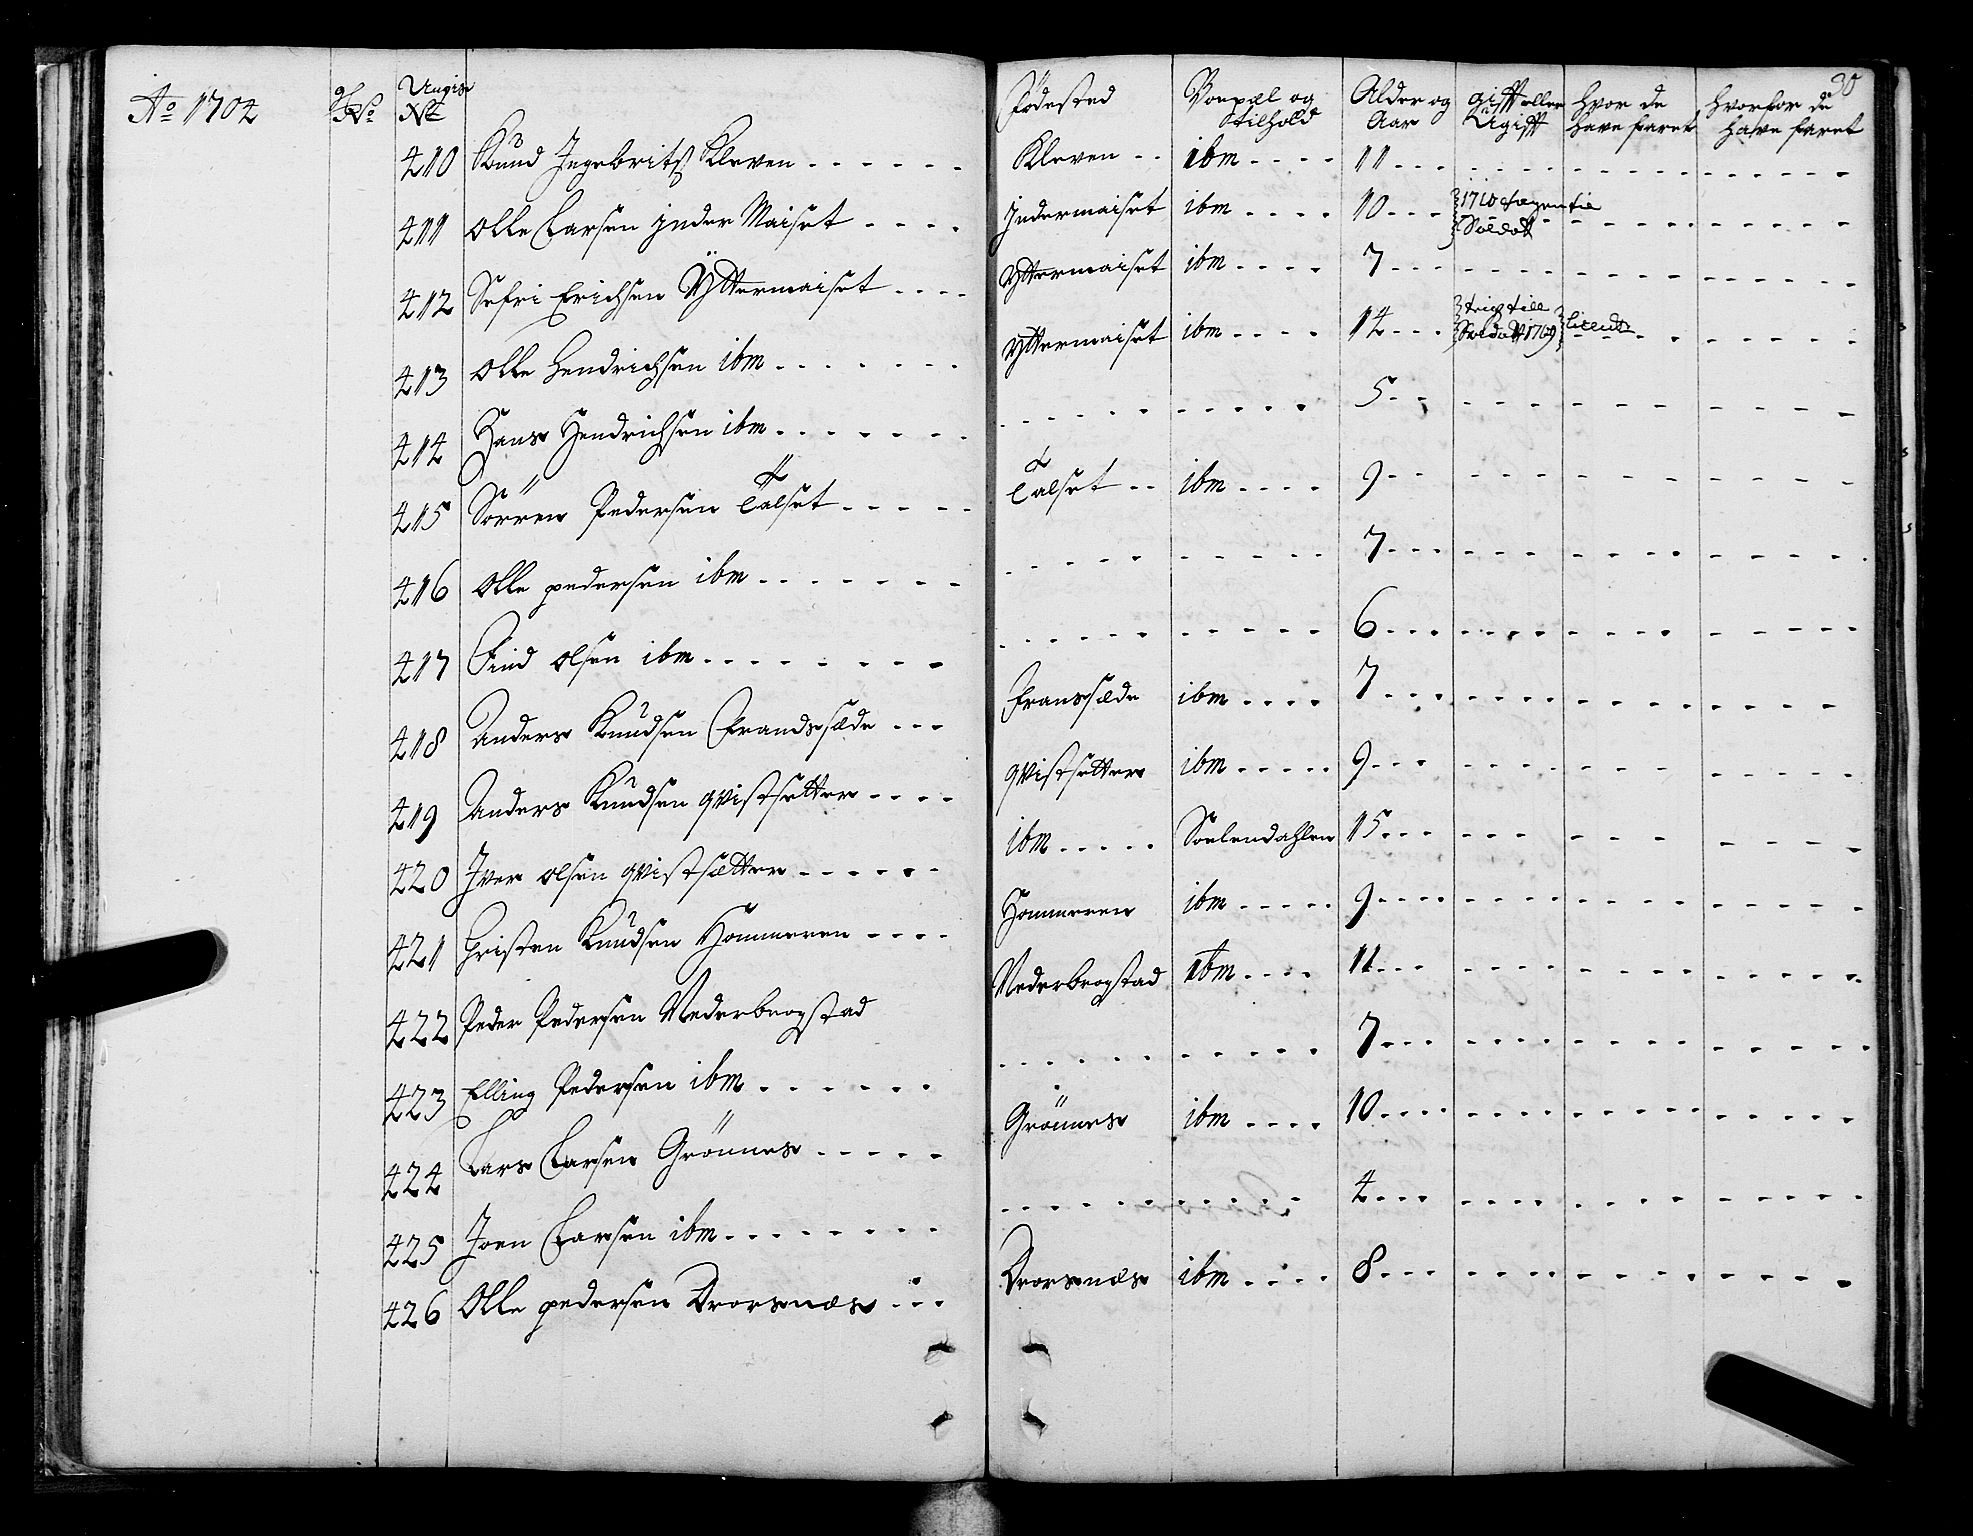 Ao 1704
No
Ungis
No
Födested
Boepæl og
tilhold
Alder og
Aar
gift eller
Ugift
hvor de
have faret
hvorfor de
have faret
30
410 Knud Ingebritz Kleven . . . . . . Kleven . . ibm . . . . 11 . . .
411 Olle Larsen inder Maiset . . . . Indermaiset ibm . . . . 10 . . . 1710 tagen til
Soldat
412 Sefri Erichsen Yttermaiset . . . . Yttermaiset ibm . . . . 7 . . .
413 Olle Hendrichsen ibm . . . . . . . Yttermaiset ibm . . . . 14 . . . till
Soldatt 1709
414 Hans Hendrichsen ibm . . . . . . . 5 . . .
415 Sörren Pedersen Talset . . . . . Talset . . ibm . . . . 9 . . .
416 Olle pedersen ibm . . . . . . . 7 . . .
417 Find olsen ibm . . . . . . . . 6 . . .
418 Anders Knudsen Frandssæde . . . Franssæde ibm . . . . 7 . . .
419 Anders Knudsen qvistsetter . . . . qvistsetter ibm . . . . . 9 . . .
420 Iver olsen qvistsætter . . . . . . ibm . . . . . Soelendahlen 15 . . .
421 Christen Knudsen Hommeren . . . . Hommeren ibm . . . . . 9 . . . .
422 Peder Pedersen Nederbrogstad Nederbrogstad ibm . . . . 11 . . .
423 Elling Pedersen ibm . . . . . . 7 . . .
424 Lars Larsen Grönnes . . . . . Grönnes ibm . . . . 10 . . . .
425 Joen Larsen ibm . . . . . . . . 4 . . .
426 Olle pedersen Drorsnæs . . . Drorsnæs ibm . . . . 8 . . .